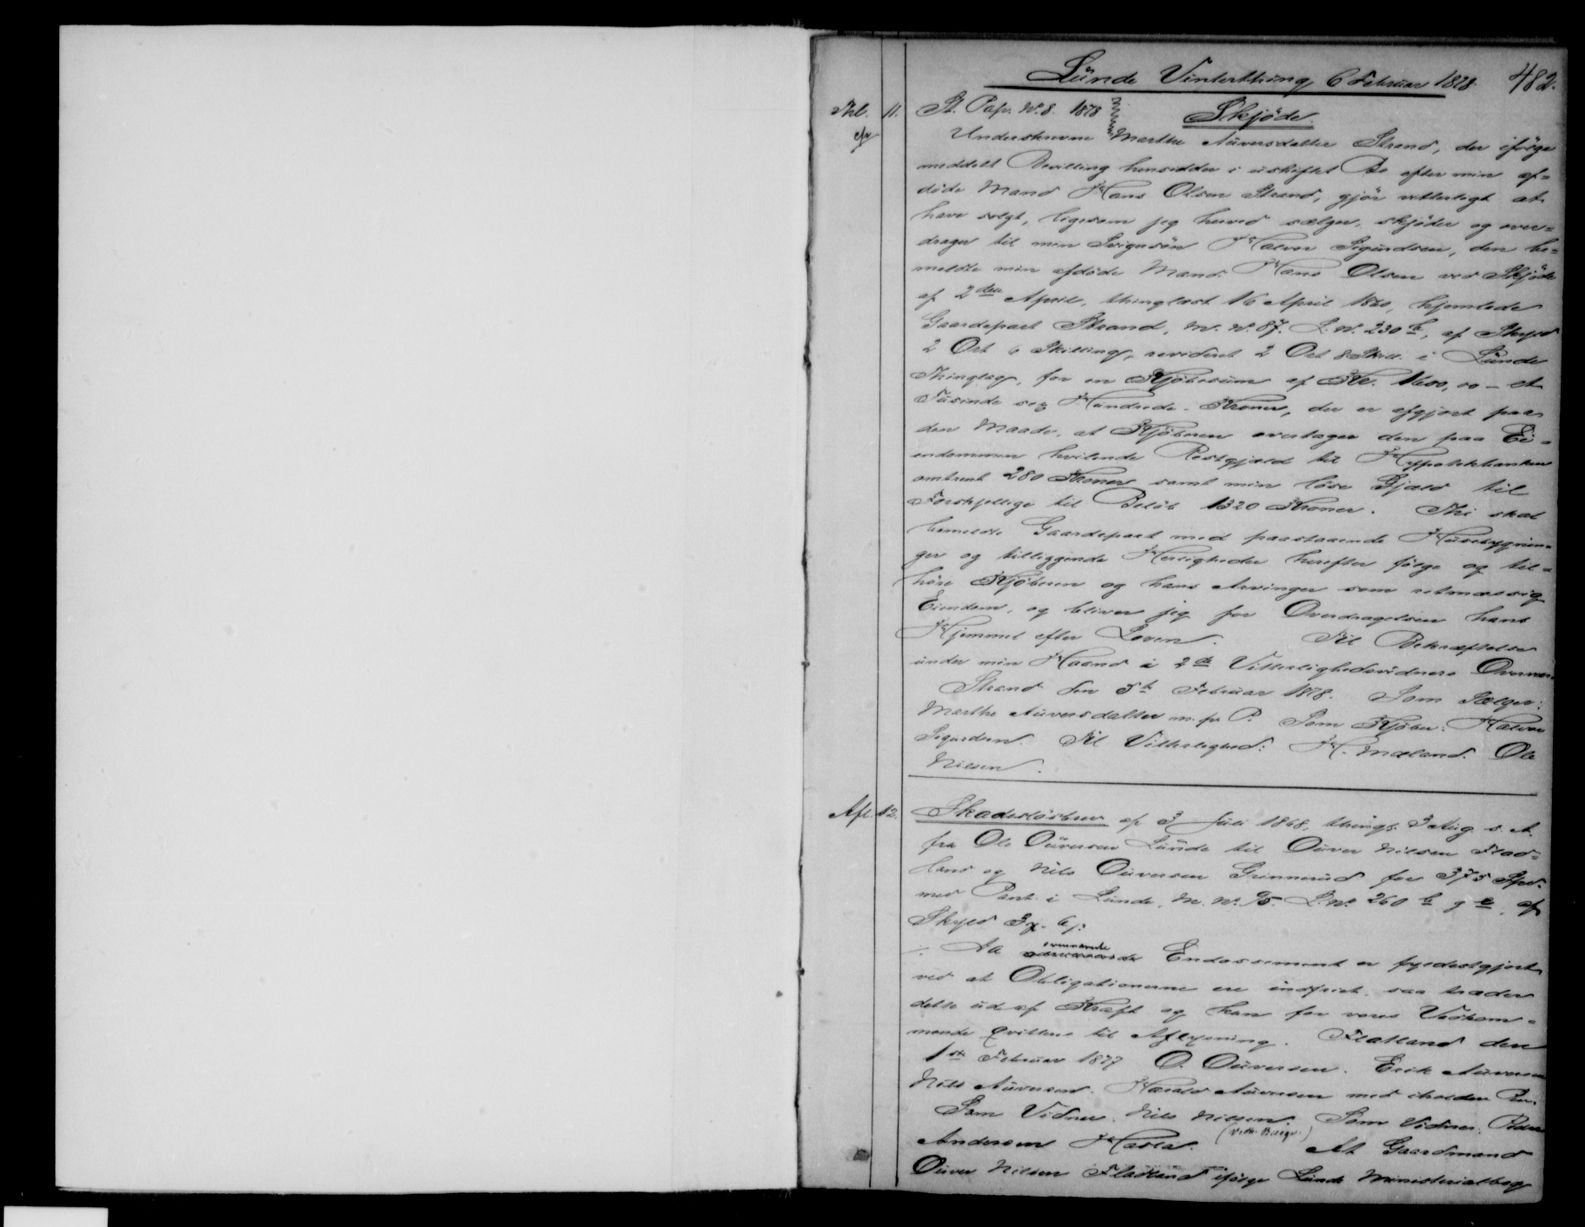 Lünde Vinterthing 6 Februar 1878. 482.
Thl. 11. St. Pap. No. 8. 1878 Skjöde.
Underskrevne Marthe Auversdatter Strand, der ifölge
meddelt Bevilling hensidder i uskiftet Bo efter min af-
döde Mand Hans Olsen Strand, gjör vitterligt at
have solgt, ligesom jeg herved sælger, skjöder og over-
drager til min Svigersön Halvor Sigurdsen, den be-
meldte min afdöde Mand Hans Olsen ved Skjöde
af 2den April, thinglæst 16 April 1860, hjemlede
Gaardepart Strand, M. No. 87. L. No. 230 b, af Skyld
2 Ort 6 Skilling, revideret 2 Ort 8 Skill. i Lünde
Thinglag, for en Kjöbesum af Kr. 1600,00 – et
Tüsinde sex Hundrede Kroner, der er afgjort paa
den Maade, at Kjöberen overtager den paa Ei-
endommen hvilende Restgjæld til Hypothekbanken
omtrent 280 Kroner samt min löse Gjæld til
Forskjellige til Belöb 1320 Kroner. Thi skal
bemeldte Gaardepart med paastaaende Hüsebygnin-
ger og tilliggende Herligheder herefter fölge og til-
höre Kjöberen og hans Arvinger som retmæssig
Eiendom, og bliver jeg for Overdragelsen hans
Hjemmel efter Loven. Til Bekræftelse
under min Haand i 2de Vitterlighedsvidners Overvær.
Strand den 5te Februar 1878. Som Sælger:
Marthe Auversdatter m. f. P. Som Kjöber: Halvor
Sigurdsen. Til Vitterlighed: H. Mæland. Ole
Nilsen.
Afl. 12. Skadeslösbrev af 3 Juli 1868, thingl. 3 Aug s. A.
fra Ole Oüversen Lünde til Oüver Nilsen Flad-
land og Nils Oüversen Grinnerud for 375 Spd.
med Pant i Lünde, M. No. 95. L. No. 260 b g e, af
Skyld
Endossement er fyldestgjort
ved at Obligationerne ere indfriet, saa træder
dette ud af Kraft og kan for vores Vedkom-
mende qvitteres til Aflysning. Flatland den
1ste Februar 1877 O. Oüversen. Erik Auversen
Nils Auversen. Harald Auversen med iholden Pen.
Som Vidner. Nils Nilsen. Som Vidner. Peder
Andersen Hasla. At Gaardmand
Oüver Nilsen Fladland ifölge Lünde Ministerialbog